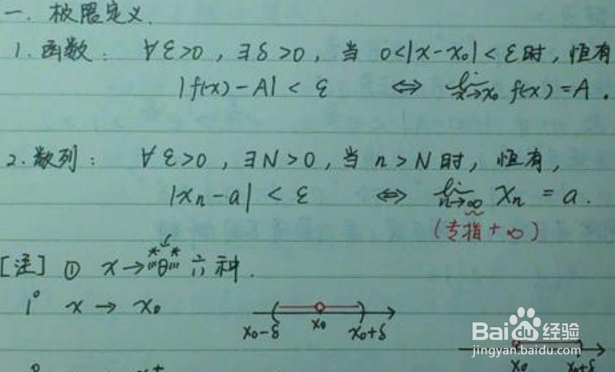 一. 极限定义.
1. 函数: ∀ε>0, ∃δ>0, 当 0<|x-x₀|<ε时, 恒有
|f(x)-A|<ε ⇔ lim x→x₀ f(x)=A.
2. 数列: ∀ε>0, ∃N>0, 当 n>N 时, 恒有,
|xₙ-a|<ε ⇔ lim n→∞ xₙ=a.
(专指+∞)
[注] ① x→"θ" 六种.
1° x→x₀
x₀-δ x₀ x₀+δ
x₀ x₀+δ
Baidu 经验
jingyan.baidu.com